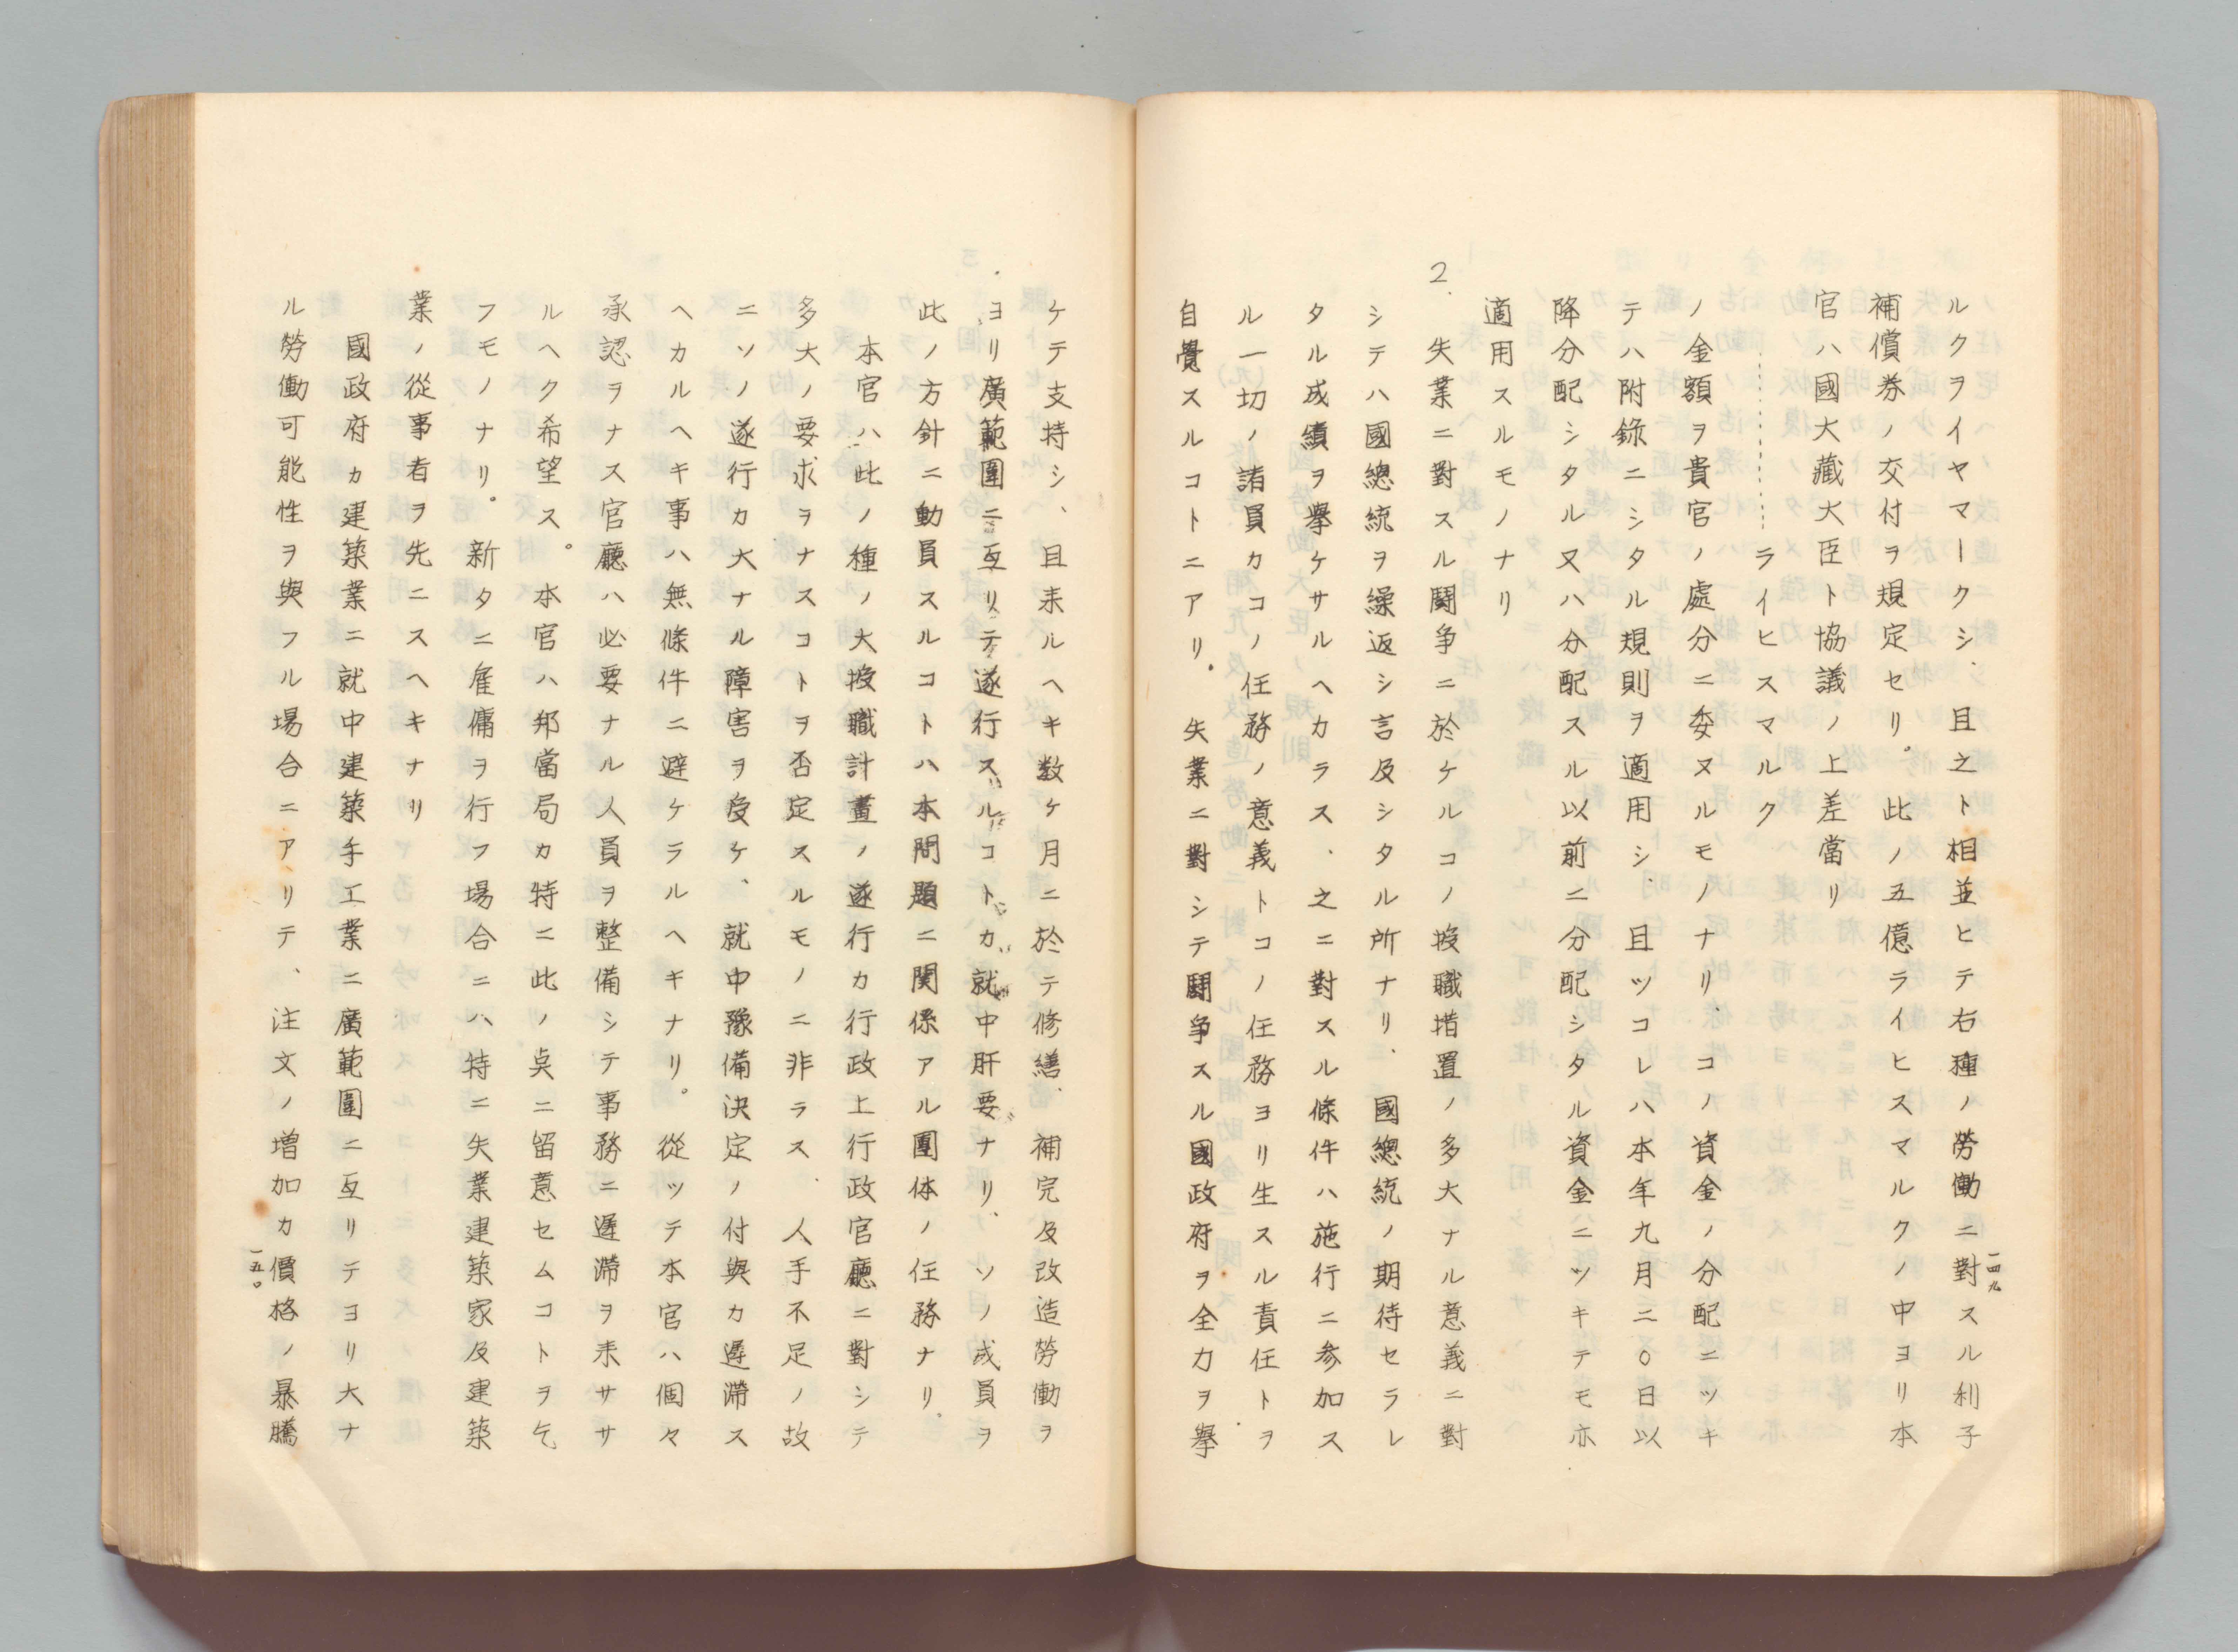 一四九
ルクヲイヤマークシ、且之ト相並ヒテ右種ノ勞働ニ對スル利子
補償券ノ交付ヲ規定セリ。此ノ五億ライヒスマルクノ中ヨリ本
官ハ國大藏大臣ト協議ノ上差當リ
…………ライヒスマルク
ノ金額ヲ貴官ノ處分ニ委ヌルモノナリ、コノ資金ノ分配ニツキ
テハ附錄ニシタル規則ヲ適用シ、且ツコレハ本年九月二〇日以
降分配シタル又ハ分配スル以前ニ分配シタル資金ニツキテモ亦
適用スルモノナリ
2.失業ニ對スル鬪爭ニ於ケルコノ授職措置ノ多大ナル意義ニ對
シテハ國總統ヲ繰返シ言及シタル所ナリ、國總統ノ期待セラレ
タル成績ヲ擧ケサルヘカラス、之ニ對スル條件ハ施行ニ參加ス
ル一切ノ諸員カコノ任務ノ意義トコノ任務ヨリ生スル責任トヲ
自覺スルコトニアリ。失業ニ對シテ鬪爭スル國政府ヲ全力ヲ擧
ケテ支持シ、且来ルヘキ数ケ月ニ於テ修繕、補完及改造勞働ヲ
ヨリ廣範圍ニ亙リテ遂行スルコトカ就中肝要ナリ、ソノ成員ヲ
此ノ方針ニ動員スルコトハ本問題ニ関係アル團体ノ任務ナリ。
本官ハ此ノ種ノ大授職計畫ノ遂行カ行政上行政官廳ニ對シテ
多大ノ要求ヲナスコトヲ否定スルモノニ非ラス、人手不足ノ故
ニソノ遂行カ大ナル障害ヲ受ケ、就中豫備決定ノ付與カ遲滯ス
ヘカルヘキ事ハ無條件ニ避ケラルヘキナリ。從ツテ本官ハ個々
承認ヲナス官廳ハ必要ナル人員ヲ整備シテ事務ニ遲滯ヲ来ササ
ルヘク希望ス。本官ハ邦當局カ特ニ此ノ奌ニ留意セムコトヲ乞
フモノナリ。新タニ雇傭ヲ行フ場合ニハ特ニ失業建築家及建築
業ノ從事者ヲ先ニスヘキナリ
國政府カ建築業ニ就中建築手工業ニ廣範圍ニ亙リテヨリ大ナ
ル勞働可能性ヲ與フル場合ニアリテ、注文ノ增加カ價格ノ暴騰
一五〇